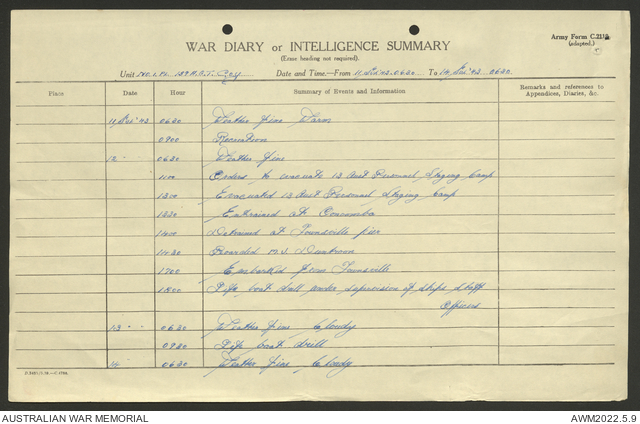 Army Form C.2118.
(adapted.)
WAR DIARY or INTELLIGENCE SUMMARY
(Erase heading not required).
Unit No. 1. Pl. 139 A.G.T. Coy Date and Time.—From 11 Dec '43 0630 To 14 Dec '43 0630.
Place Date Hour Summary of Events and Information Remarks and references to
Appendices, Diaries, &c.
11 Dec '43 0630 Weather fine Warm
0900 Recreation
12 " 0630 Weather fine
1100 Orders to evacuate 13 Aust Personnel Staging Camp
1300 Evacuated 13 Aust Personnel Staging Camp
1330 Entrained at Oonoomba
1400 Detrained at Townsville pier
1430 Boarded M.S. Duntroon
1700 Embarked from Townsville
1800 Life boat drill under supervision of ships staff
Officers
13 " " 0630 Weather fine Cloudy
0930 Life boat drill
14 0630 Weather fine Cloudy
AUSTRALIAN WAR MEMORIAL AWM2022.5.9